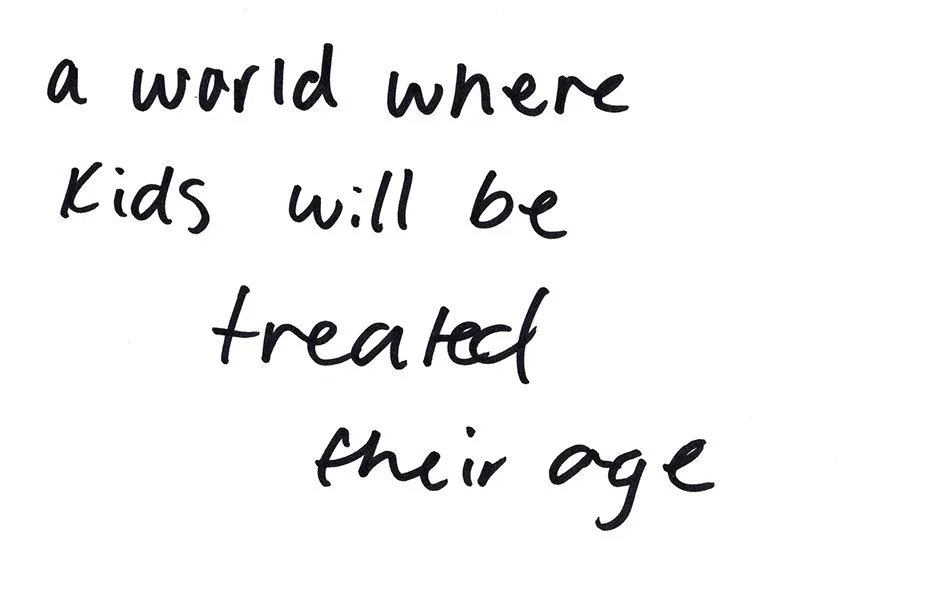 a world where
Kids will be
treated
their age